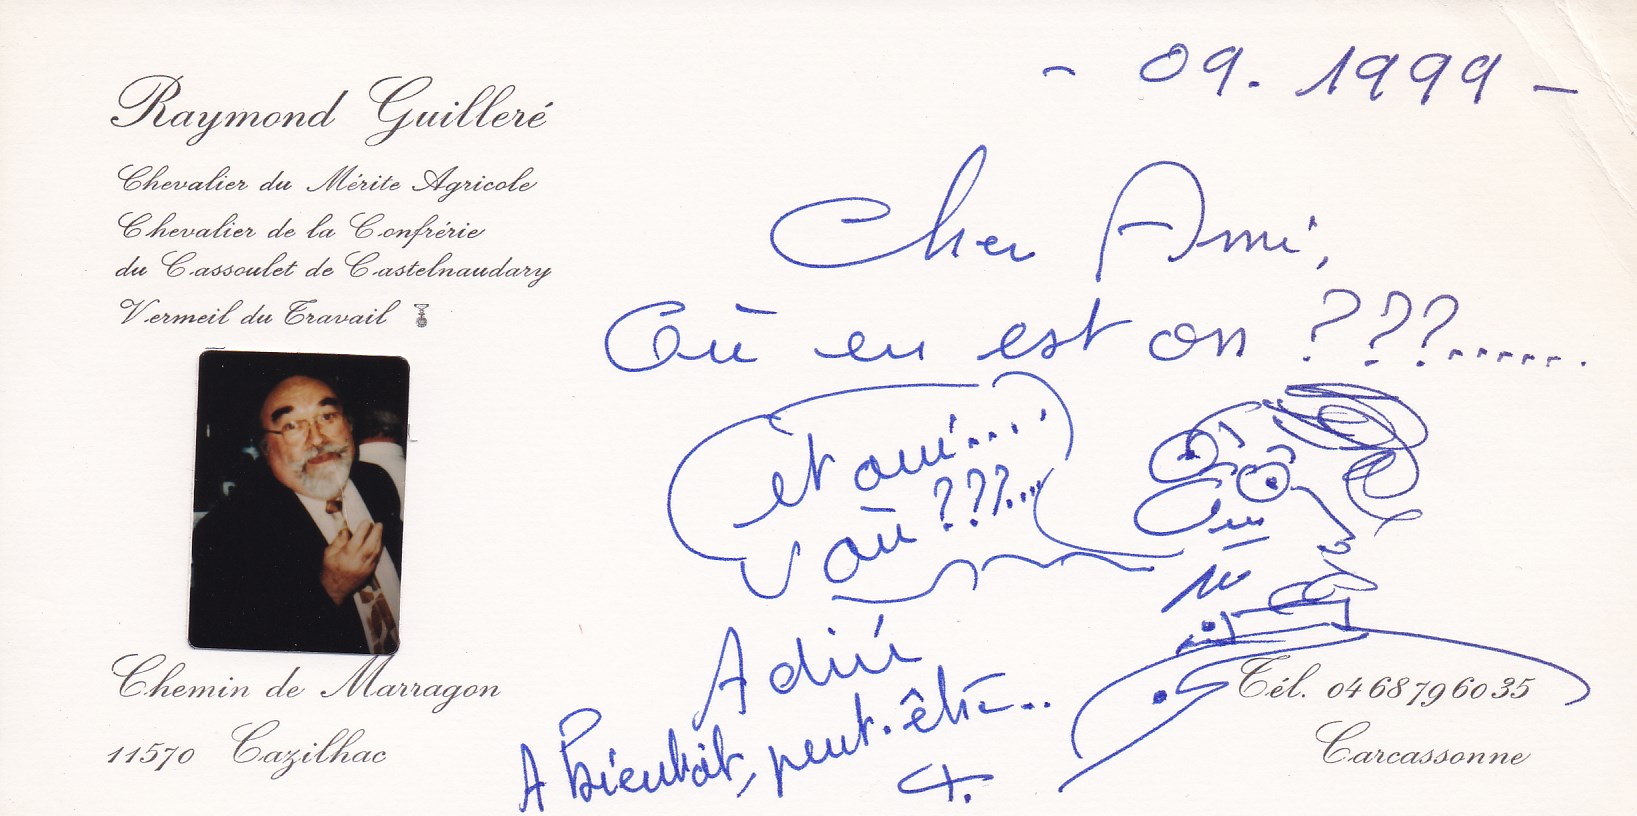 Raymond Guilleré
Chevalier du Mérite Agricole
Chevalier de la Confrérie
du Cassoulet de Castelnaudary
Vermeil du Travail
Chemin de Marragon
11570 Cazilhac
- 09. 1999 -
Cher Ami,
Où en est on ???......
et oui....
où ???...
A Bientôt, peut-être..
Tél. 0468796035
Carcassonne